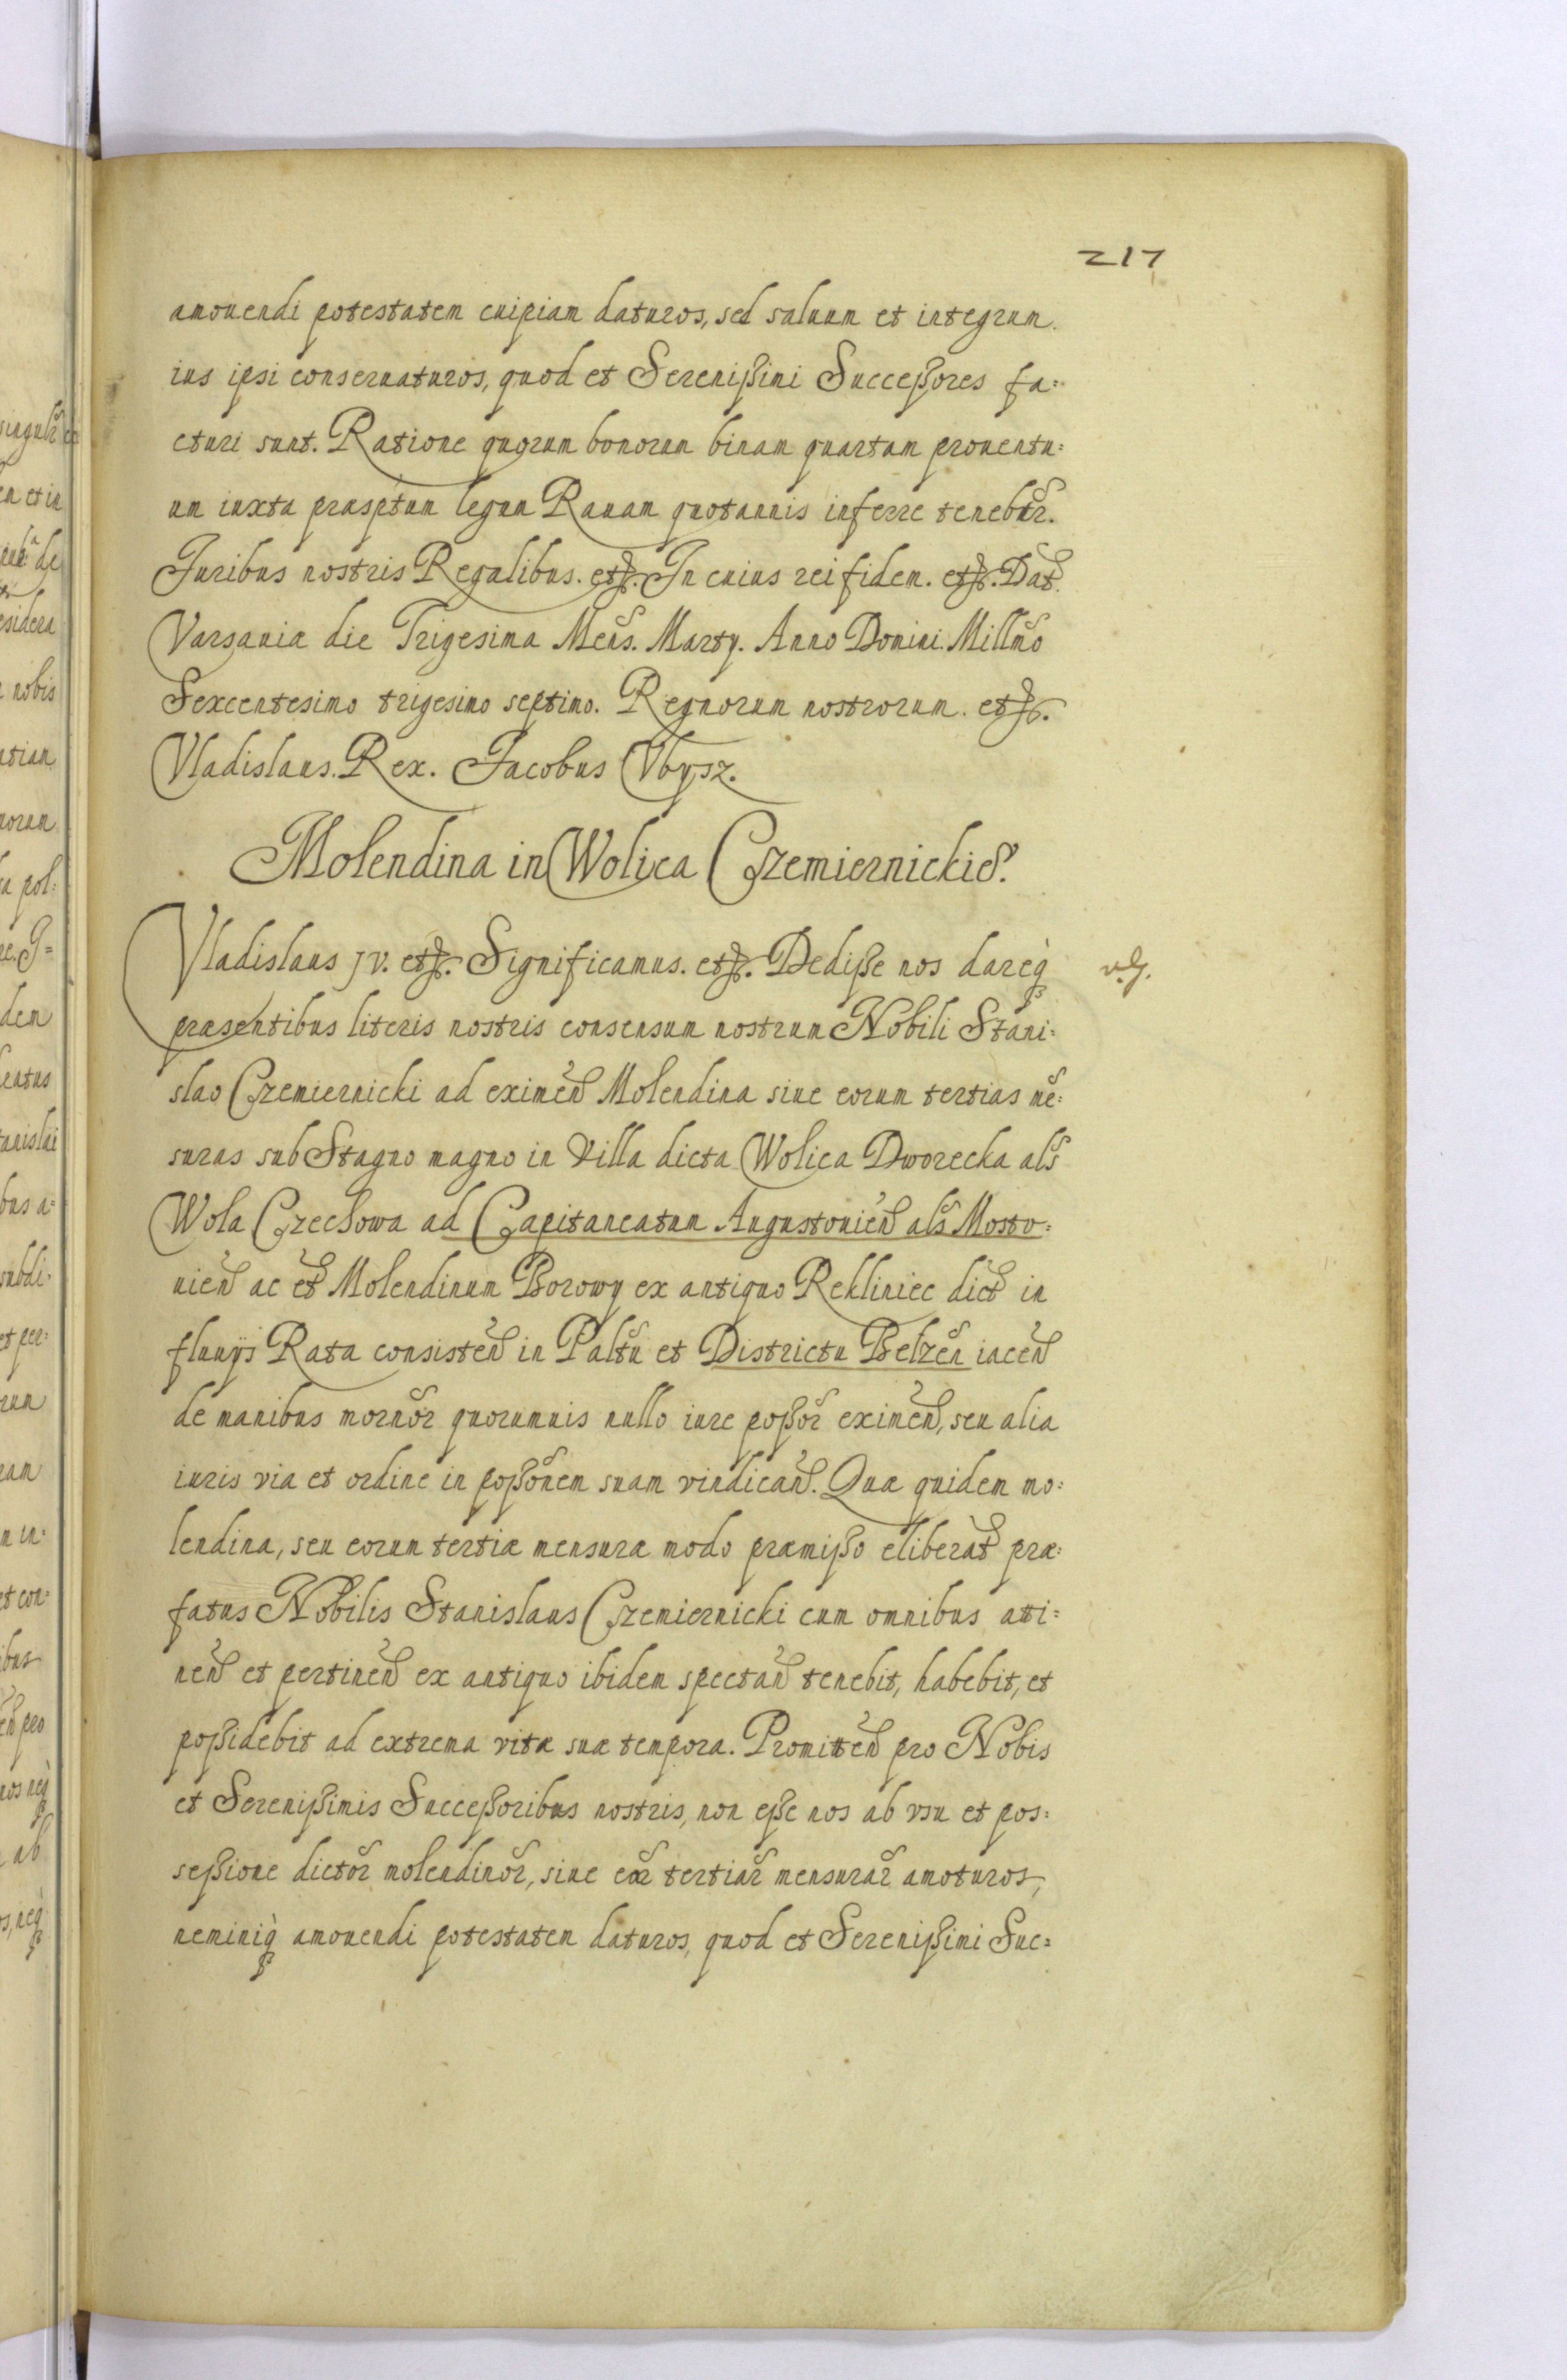 217
amouendi potestatem cuipiam daturos, sed saluum et integrum
ius ipsi conseruaturos, quod et Sereniſsimi Succeſsores fa=
cturi sunt. Ratione quorum bonorum binam quartam prouentu=
um iuxta præsptum legum Rauam quotannis inferre tenebr̃.
Juribus nostris Regalibus. etc. In cuius rei fidem. etc. Dat̃.
Varsauiæ die Trigesima Meñs. Martÿ. Anno Domini. Millm̃o
Sexcentesimo trigesimo septimo. Regnorum nostrorum. etc.
Vladislaus. Rex. Jacobus Vbysz.
Molendina in Wolica Czemiernickie.
Vladislaus JV. etc. Significamus. etc. Dediſse nos dareq̀
præsentibus literis nostris consensum nostrum Nobili Stani=
slao Czemiernicki ad eximeñ Molendina siue eorum tertias mẽ=
suras sub Stagno magno in Villa dicta Wolica Dworecka als̃
Wola Czechowa ad Capitaneatum Augustouieñ als̃ Mosto=
uieñ ac et̃ Molendinum Borowy ex antiquo Rekliniec dict̃ in
fluuÿs Rata consisteñ in Palt̃u et Districtu Belzeñ iaceñ
de manibus mornõr quorumuis nullo iure poſsõr eximeñ, seu alia
iuris via et ordine in poſsõnem suam vindicañ. Quæ quidem mo=
lendina, seu eorum tertiæ mensuræ modo præmiſso eliberat̃ præ=
fatus Nobilis Stanislaus Czemiernicki cum omnibus atti=
neñ et pertineñ ex antiquo ibidem spectañ tenebit, habebit, et
poſsidebit ad extrema vitæ suæ tempora. Promitteñ pro Nobis
et Sereniſsimis Succeſsoribus nostris, non eſse nos ab vsu et pos=
seſsione dictõr molendinõr, siue eõr tertiãr mensurãr amoturos,
neminiq̀ amouendi potestatem daturos, quod et Sereniſsimi Suc=